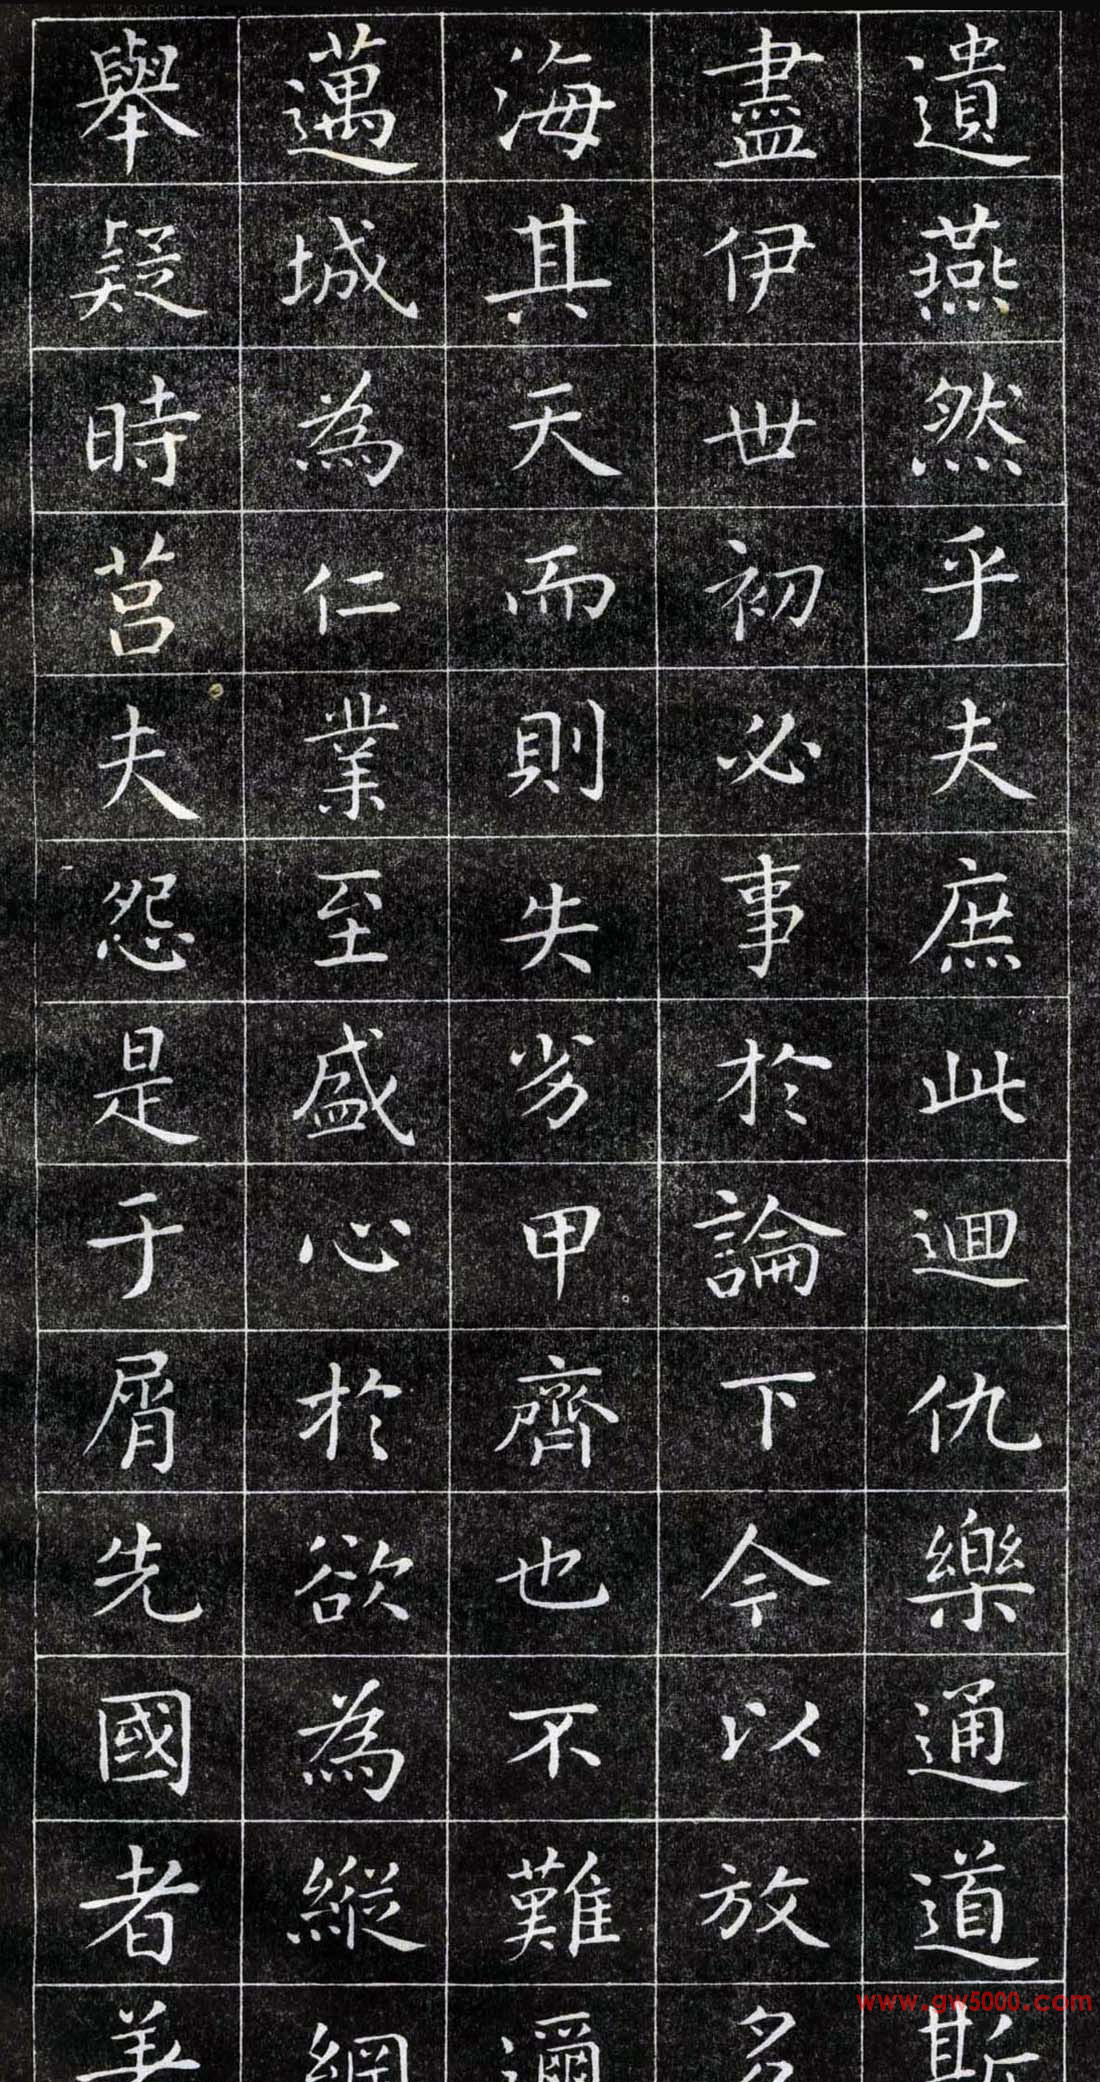 遺燕然乎夫庶此迴仇樂通道斯
盡伊世初必事於論下今以放多
海其天而則失劣甲齊也不難邇
邁城為仁業至盛心於欲為縱網
舉疑時莒夫怨是于屑先國者
www.gw5000.com